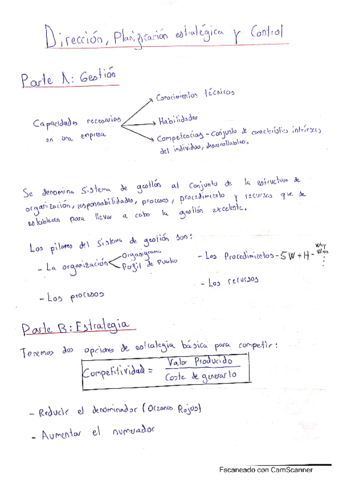 Dirección, Planificación estratégica y Control
Parte A: Gestión
Conocimientos técnicos
Capacidades necesarias
en una empresa
Habilidades
Competencias - Conjunto de características
del individuo, desarrollables.
Se denomina Sistema de gestión al Conjunto de la estructura de
organización, responsabilidades, procesos, procedimiento y recursos que se
establecen para llevar a cabo la gestión excelente.
Los pilares del Sistema de gestión son:
- La organización
Organigrama
Perfil de Puesto
- Los Procedimientos - 5W + H -
- Los procesos
- Los recursos
Parte B: Estrategia
Tenemos dos opciones de estrategia básica para competir:
Competitividad = Valor Producido
Coste de generarlo
- Reducir el denominador (Oceanos Rojos)
- Aumentar el numerador
Escaneado con CamScanner